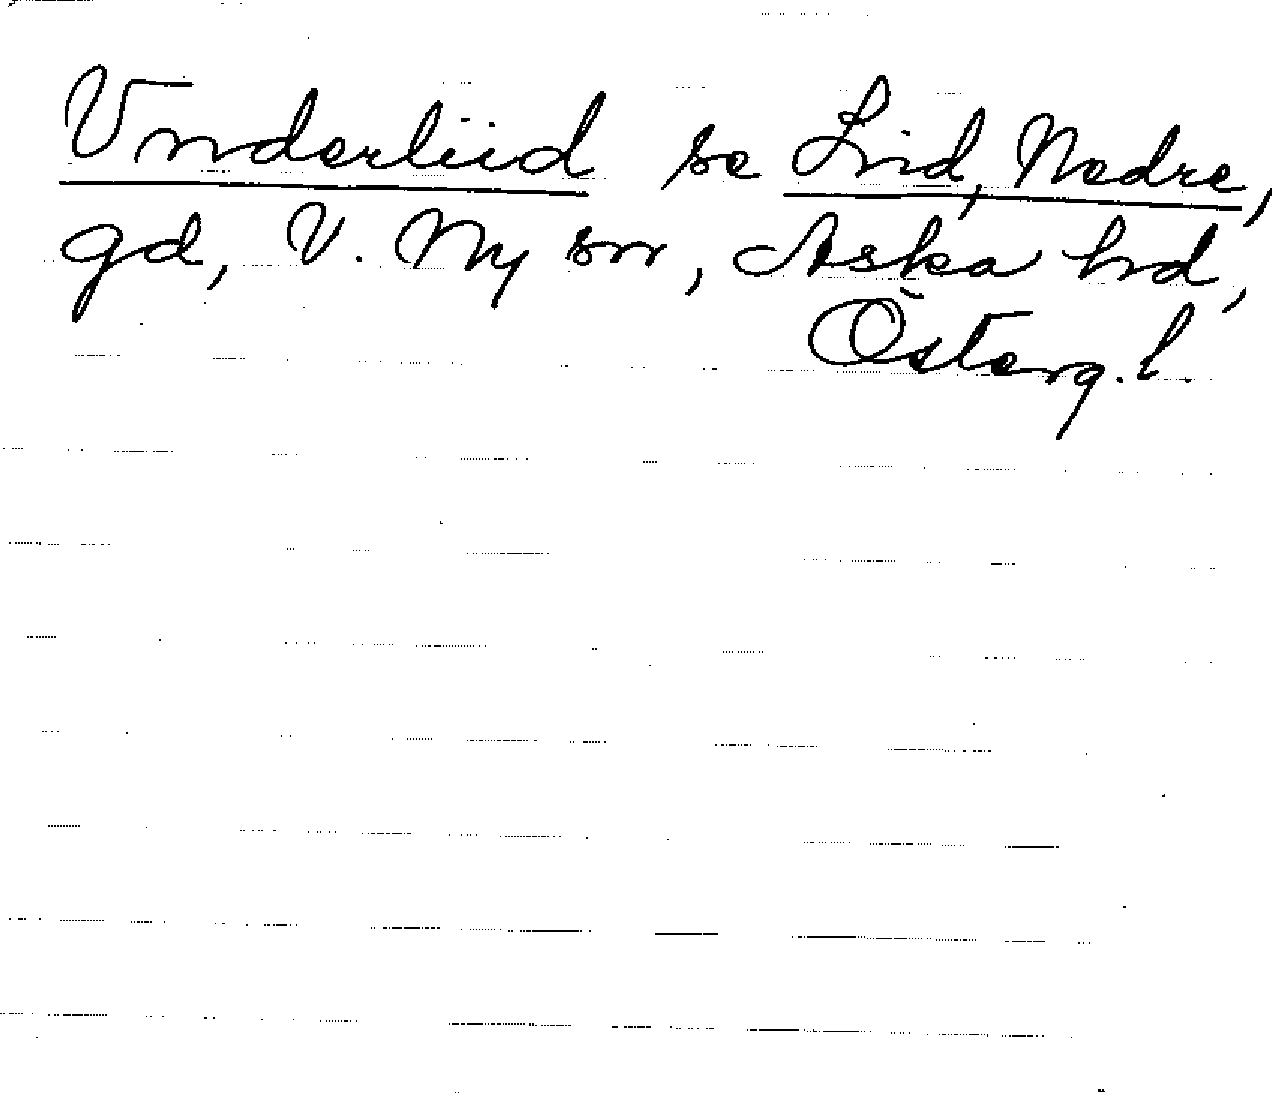 Vnderliid se Lid, Nedre,
gd, V. Ny sn, Aska hd,
Österg. l.